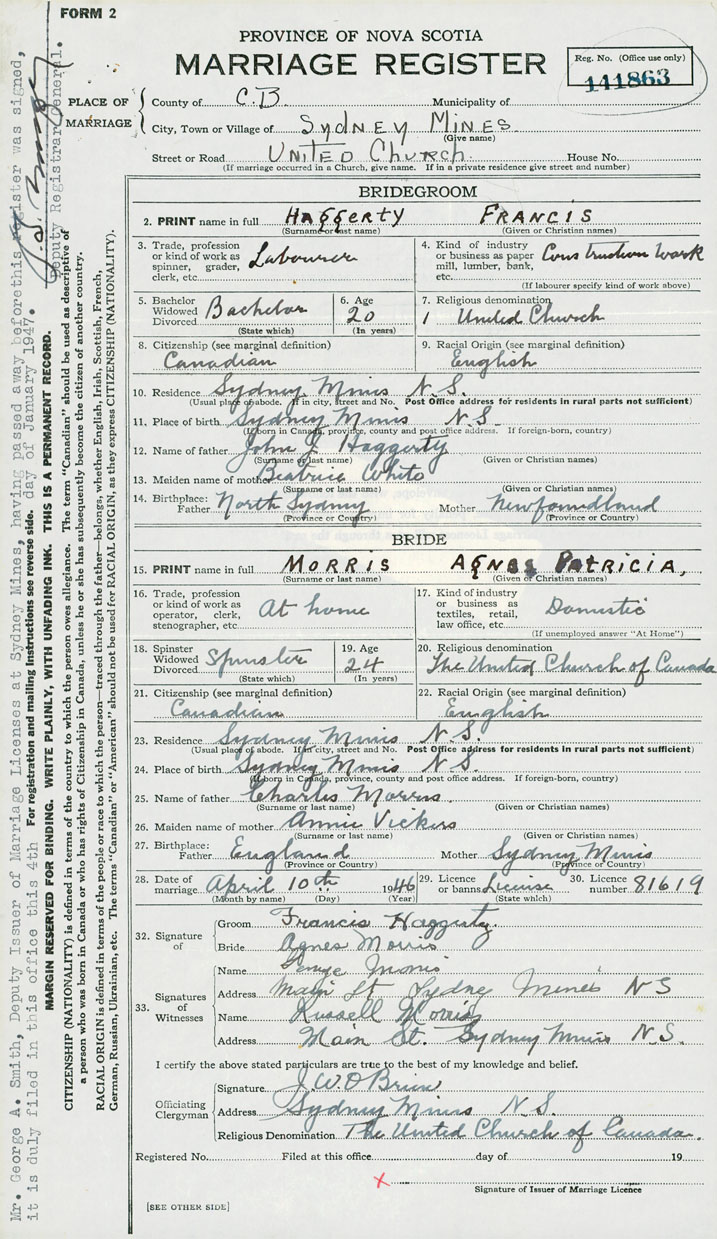 FORM 2
PROVINCE OF NOVA SCOTIA
MARRIAGE REGISTER
Reg. No. (Office use only)
141863
PLACE OF MARRIAGE
County of C.B. Municipality of
City, Town or Village of SYDNEY MINES
(Give name)
Street or Road UNITED CHURCH House No.
(If marriage occurred in a Church, give name. If in a private residence give street and number)
BRIDEGROOM
2. PRINT name in full HAGGERTY FRANCIS
(Surname or last name) (Given or Christian names)
3. Trade, profession or kind of work as spinner, grader, clerk, etc. Labourer
4. Kind of industry or business as paper mill, lumber, bank, etc. Construction Work
(If labourer specify kind of work above)
5. Bachelor Widowed Divorced Bachelor
(State which)
6. Age 20
(In years)
7. Religious denomination
United Church
8. Citizenship (see marginal definition)
Canadian
9. Racial Origin (see marginal definition)
English
10. Residence Sydney Mines N.S.
(Usual place of abode. If in city, street and No. Post Office address for residents in rural parts not sufficient)
11. Place of birth Sydney Mines N.S.
(If born in Canada, province, county and post office address. If foreign-born, country)
12. Name of father John J. Haggerty
(Surname or last name) (Given or Christian names)
13. Maiden name of mother Beatrice White
(Surname or last name) (Given or Christian names)
14. Birthplace: Father North Sydney Mother Newfoundland
(Province or Country) (Province or Country)
BRIDE
15. PRINT name in full MORRIS AGNES PATRICIA,
(Surname or last name) (Given or Christian names)
16. Trade, profession or kind of work as operator, clerk, stenographer, etc. At home
17. Kind of industry or business as textiles, retail, law office, etc. Domestic
(If unemployed answer "At Home")
18. Spinster Widowed Divorced Spinster
(State which)
19. Age 24
(In years)
20. Religious denomination
The United Church of Canada
21. Citizenship (see marginal definition)
Canadian
22. Racial Origin (see marginal definition)
English
23. Residence Sydney Mines N.S.
(Usual place of abode. If in city, street and No. Post Office address for residents in rural parts not sufficient)
24. Place of birth Sydney Mines N.S.
(If born in Canada, province, county and post office address. If foreign-born, country)
25. Name of father Charles Morris
(Surname or last name) (Given or Christian names)
26. Maiden name of mother Annie Vickers
(Surname or last name) (Given or Christian names)
27. Birthplace: Father England Mother Sydney Mines
(Province or Country) (Province or Country)
28. Date of marriage April 10th 1946
(Month by name) (Day) (Year)
29. Licence or banns License
(State which)
30. Licence number 81619
32. Signature of
Groom Francis Haggerty.
Bride Agnes Morris
33. Signatures of Witnesses
Name George Morris
Address Main St Sydney Mines NS
Name Russell Morris
Address Main St. Sydney Mines N.S.
I certify the above stated particulars are true to the best of my knowledge and belief.
Officiating Clergyman
Signature J W O'Brien
Address Sydney Mines N.S.
Religious Denomination The United Church of Canada.
Registered No. Filed at this office day of 19
x
Signature of Issuer of Marriage Licence
[SEE OTHER SIDE]
Mr. George A. Smith, Deputy Issuer of Marriage Licenses at Sydney Mines, having passed away before this register was signed,
it is duly filed in this office this 4th day of January 1947.
Deputy Registrar General.
For registration and mailing instructions see reverse side.
MARGIN RESERVED FOR BINDING. WRITE PLAINLY, WITH UNFADING INK. THIS IS A PERMANENT RECORD.
CITIZENSHIP (NATIONALITY) is defined in terms of the country to which the person owes allegiance. The term "Canadian" should be used as descriptive of
a person who was born in Canada or who has rights of Citizenship in Canada, unless he or she has subsequently become the citizen of another country.
RACIAL ORIGIN is defined in terms of the people or race to which the person—traced through the father—belongs, whether English, Irish, Scottish, French,
German, Russian, Ukrainian, etc. The terms "Canadian" or "American" should not be used for RACIAL ORIGIN, as they express CITIZENSHIP (NATIONALITY).